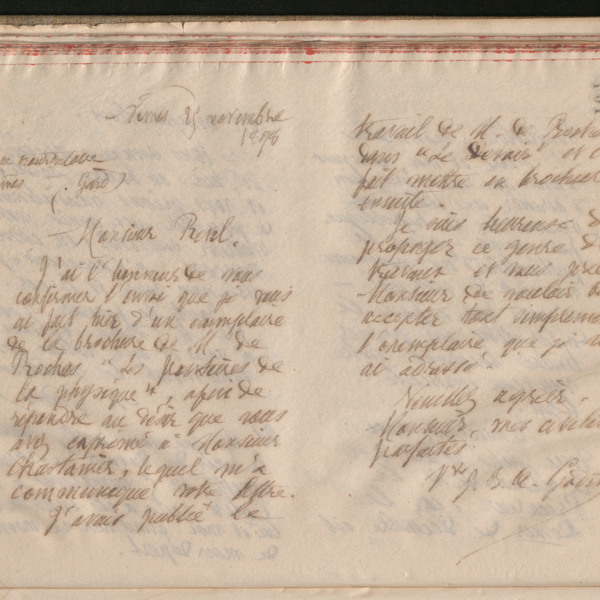 Nîmes 25 novembre
1898
Nîmes (Gard)
Monsieur Revel.
J'ai l'honneur de vous
confirmer l'envoi que je vous
ai fait hier d'un exemplaire
de la brochure de M. de
Rochas "Les frontières de
la physique", afin de
répondre au désir que vous
avez exprimé à Monsieur
lequel m'a
communiqué votre lettre.
J'avais publié le
travail de M. de Rochas
dans "Le Devoir" et
fait mettre en brochure
ensuite.
Je suis heureuse de
propager ce genre de
travaux et vous prie
Monsieur de vouloir
accepter tout simplement
l'exemplaire que je
ai adressé.
Veuillez agréer,
Monsieur, mes
parfaites.
Vve J. B. A. Godin